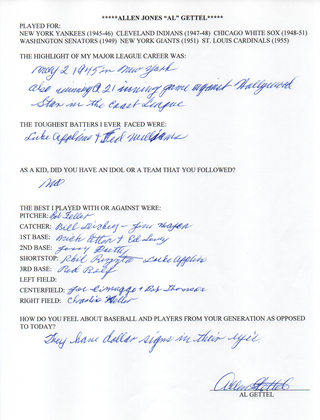 *****ALLEN JONES "AL" GETTEL*****
PLAYED FOR:
NEW YORK YANKEES (1945-46) CLEVELAND INDIANS (1947-48) CHICAGO WHITE SOX (1948-51)
WASHINGTON SENATORS (1949) NEW YORK GIANTS (1951) ST. LOUIS CARDINALS (1955)
THE HIGHLIGHT OF MY MAJOR LEAGUE CAREER WAS:
May 2 1945 in New York
also winning a 21 inning game against Hollywood
Stars in the Coast League
THE TOUGHEST BATTERS I EVER FACED WERE:
Luke Appling & Ted Williams
AS A KID, DID YOU HAVE AN IDOL OR A TEAM THAT YOU FOLLOWED?
no
THE BEST I PLAYED WITH OR AGAINST WERE:
PITCHER: Bob Feller
CATCHER: Bill Dickey - Jim Hegan
1ST BASE: Nick Etten & Ed
2ND BASE:
SHORTSTOP: Phil Rizzuto - Luke Appling
3RD BASE: Red Rolfe
LEFT FIELD:
CENTERFIELD: Joe Dimaggio & Bob Thomson
RIGHT FIELD: Charlie Keller
HOW DO YOU FEEL ABOUT BASEBALL AND PLAYERS FROM YOUR GENERATION AS OPPOSED
TO TODAY?
They have dollar signs in their eyes.
Allen Gettel
AL GETTEL